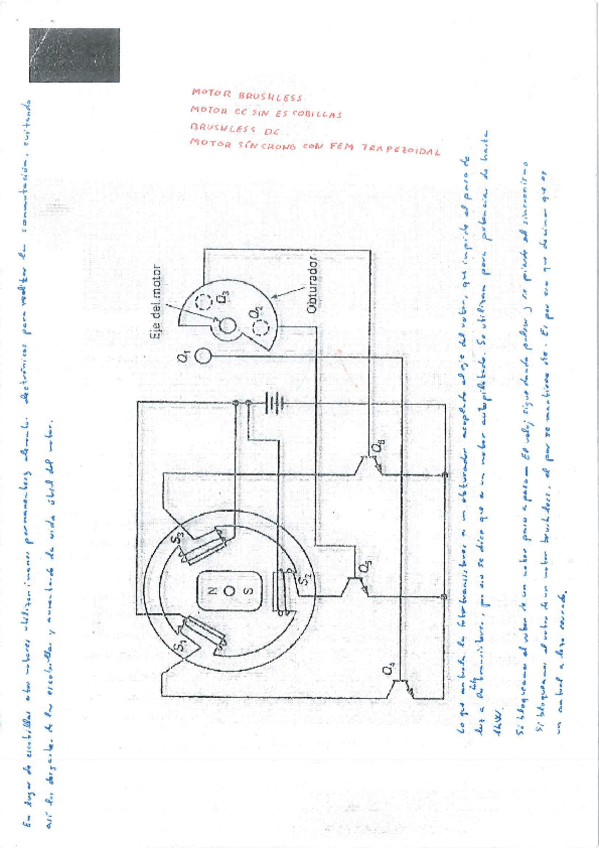 MOTOR BRUSHLESS
MOTOR CC SIN ESCOBILLAS
BRUSHLESS DC
MOTOR SÍNCRONO CON FEM TRAPEZOIDAL
En lugar de escobillas estos motores utilizan imanes permanentes y electrónicos para realizar la conmutación, evitando
así los desgastes de las escobillas y aumentando la vida útil del motor.
Eje del motor
Obturador
Q1
Q3
Q2
S3
S1
S2
N
S
Q6
Q5
Q4
Lo que controla los fototransistores es un obturador acoplado al eje del rotor, que impide el paso de
luz a los transistores, por eso se dice que es un motor autopilotado. Se utilizan para potencia de hasta
1kW.
Si bloqueamos el rotor de un motor paso a paso El reloj sigue dando pulsos y se pierde el sincronismo
Si bloqueamos el rotor de un motor brushless, el par se mantiene. Es por eso que decimos que es
un control a lazo cerrado,